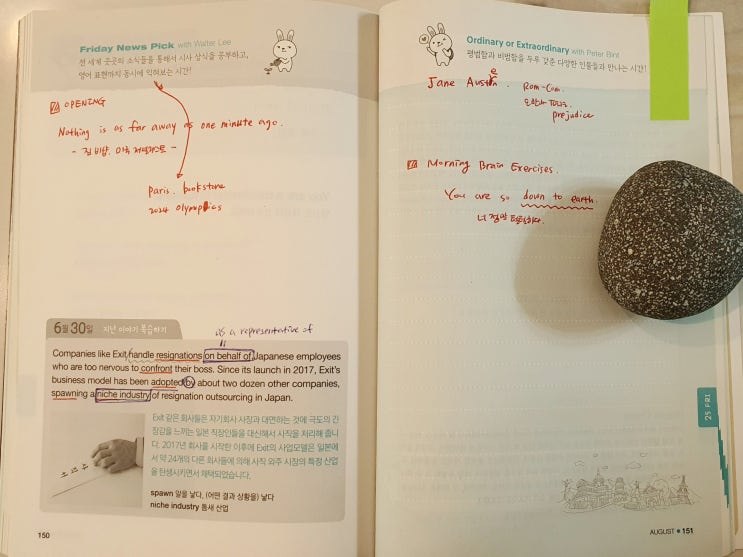 Friday News Pick with Walter Lee
전 세계 곳곳의 소식들을 통해서 시사 상식을 공부하고,
영어 표현까지 동시에 익혀보는 시간!
OPENING
Nothing is as far away as one minute ago.
- 짐 비숍, 미국 저널리스트 -
Paris. bookstore
2024 olympics
6월 30일 지난 이야기 복습하기
as a representative of
Companies like Exit handle resignations on behalf of Japanese employees
who are too nervous to confront their boss. Since its launch in 2017, Exit's
business model has been adopted by about two dozen other companies,
spawning a niche industry of resignation outsourcing in Japan.
Exit 같은 회사들은 자기회사 사장과 대면하는 것에 극도의 긴
장감을 느끼는 일본 직장인들을 대신해서 사직을 처리해 줍니
다. 2017년 회사를 시작한 이후에 Exit의 사업모델은 일본에
서 약 24개의 다른 회사들에 의해 사직 외주 시장의 특정 산업
을 탄생시키면서 채택되었습니다.
spawn 알을 낳다, (어떤 결과·상황을) 낳다
niche industry 틈새 산업
150
Ordinary or Extraordinary with Peter Bint
평범함과 비범함을 두루 갖춘 다양한 인물들과 만나는 시간!
Jane Austen
Rom-Com.
prejudice
Morning Brain Exercises.
You are so down to earth.
너 정말 털털하다.
25 FRI
AUGUST 151